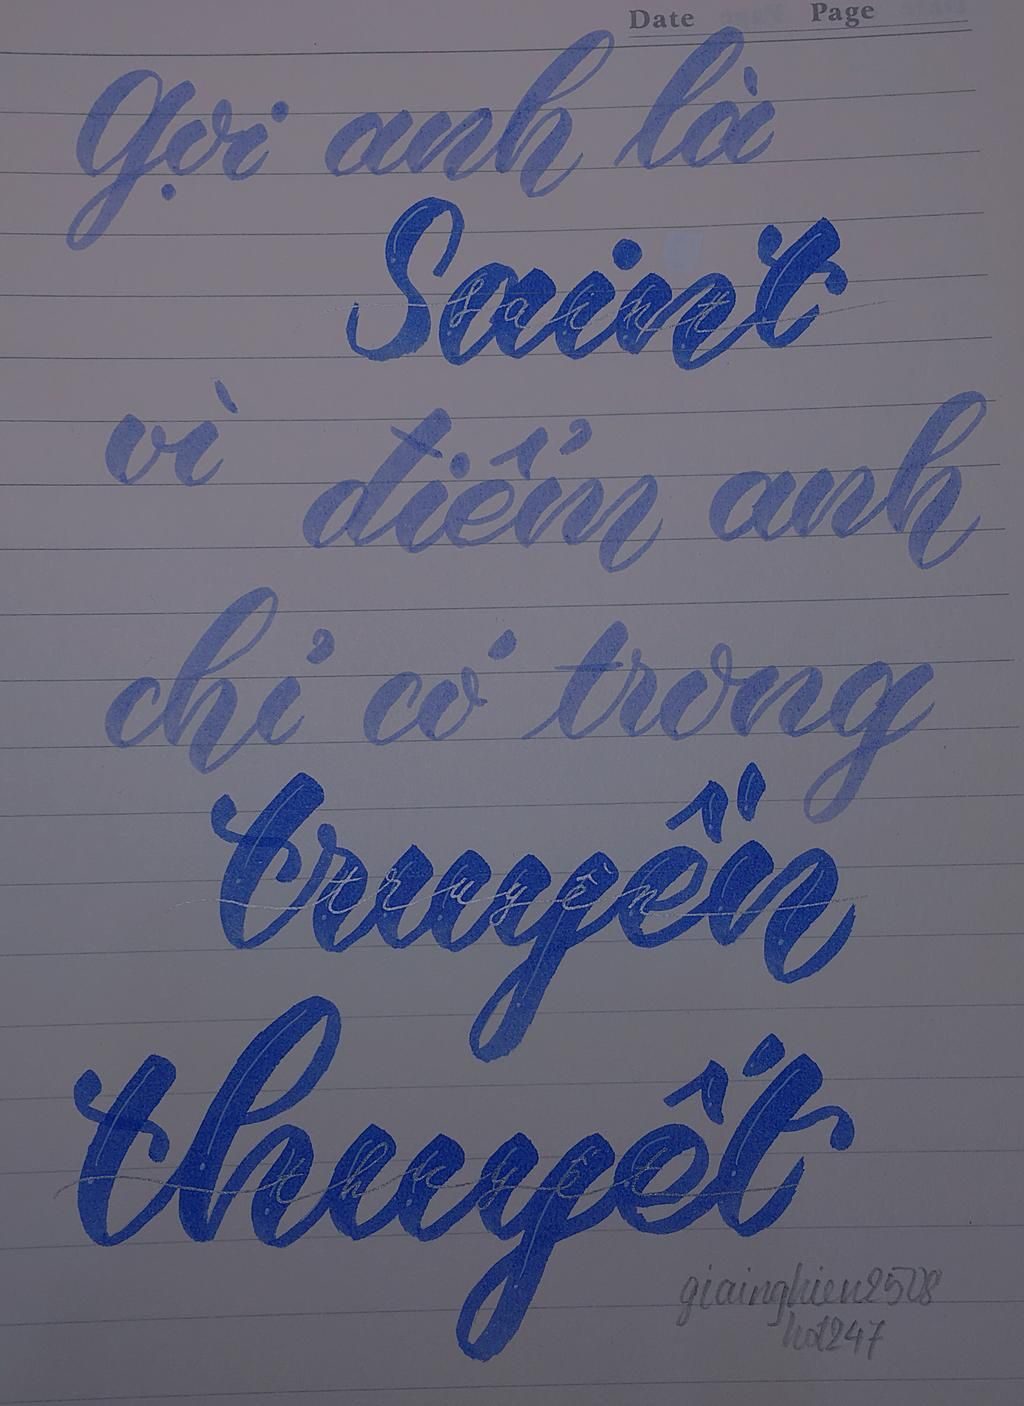 Date Page
Gọi anh là
Saint
vì điểm anh
chỉ có trong
truyền
thuyết
giainghien2508